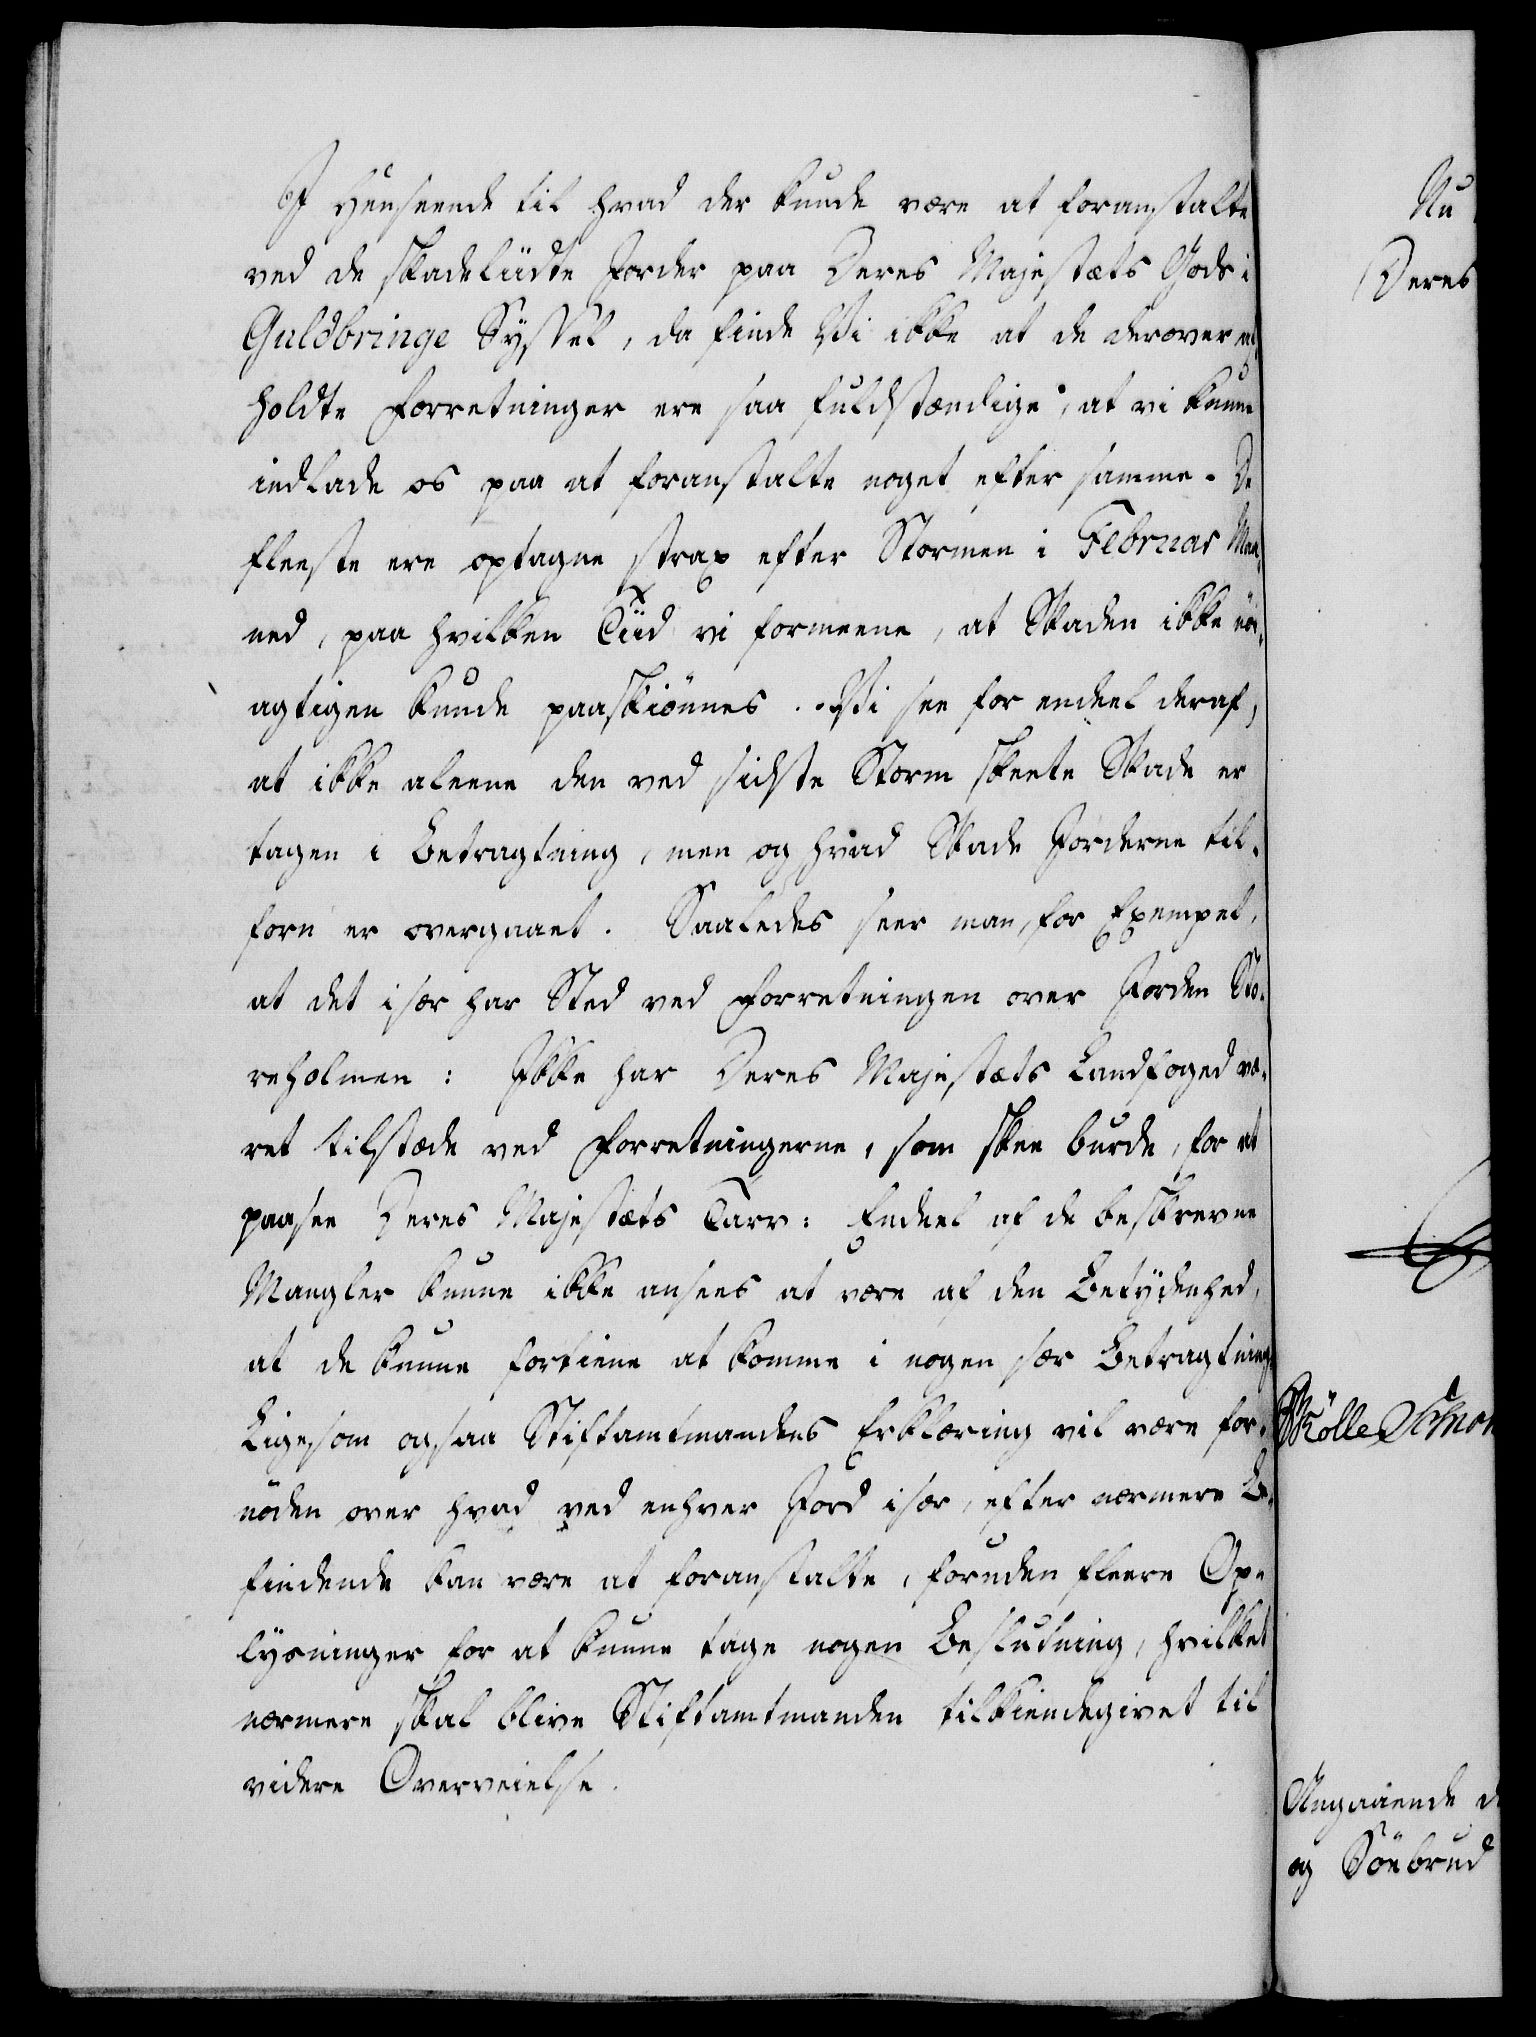 I Henseende til hvad der kunde være at foranstalte
ved de skadeliidte Jorder paa Deres Majestæts Gods i
Guldbringe Syssel, da finde Vi ikke at de derover af
holdte Forretninger ere saa fuldstændige, at vi kunne
indlade os paa at foranstalte noget efter samme. De
fleeste ere optagne strax efter Stormen i Februar Maa
ned, paa hvilken Tiid vi formeene, at Skaden ikke nöi-
agtigen kunde paaskiönnes. Vi see for endeel deraf,
at ikke aleene den ved sidste Storm skeete Skade er
tagen i Betragtning, men og hvad Skade Jorderne til-
forn er overgaaet. Saaledes seer man, for Exempel,
at det især har Sted ved Forretningen over Jorden Sto-
reholmen: Ikke har Deres Majestæts Landfoged væ-
ret tilstæde ved Forretningerne, som skee burde, for at
paasee Deres Majestæts Tarv: Endeel af de beskrevne
Mangler kunne ikke ansees at være af den Betydenhed,
at de kunne fortiene at komme i nogen sær Betragtning
Ligesom ogsaa Stiftamtmandens Erklæring vil være for-
nöden over hvad ved enhver Jord især, efter nærmere Be-
findende kan være at foranstalte, foruden fleere Op-
lysninger for at kunne tage nogen Beslutning, hvilket
nærmere skal blive Stiftamtmanden tilkiendegivet til
videre Overveielse.
Nu
Deres
Angaaende d
og Söebrud